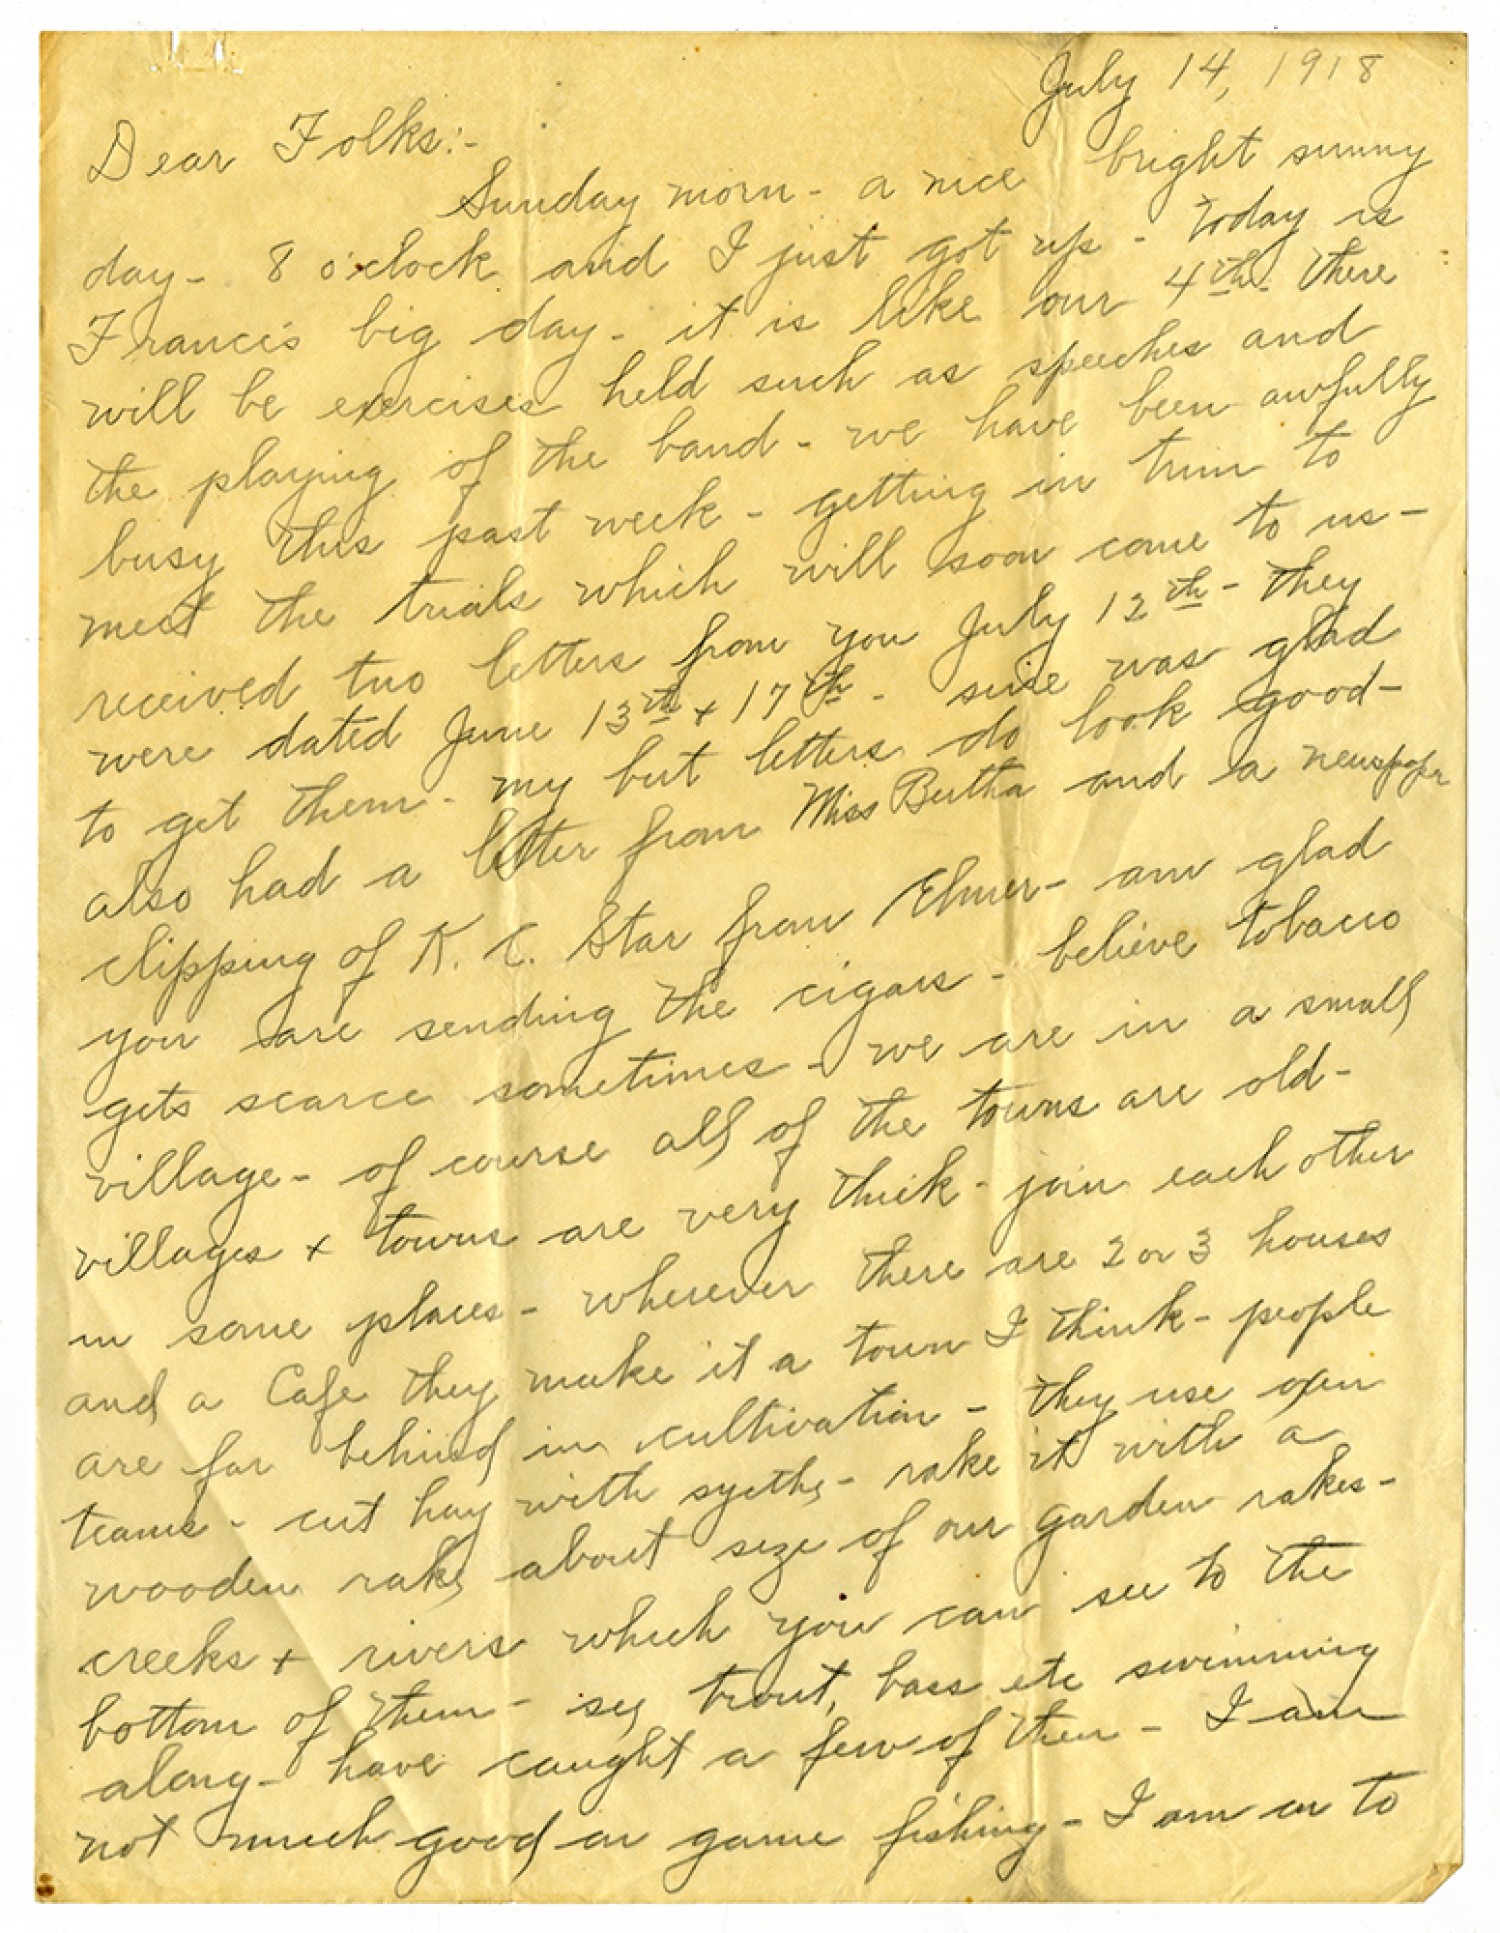 July 14, 1918
Dear Folks:-
Sunday morn - a nice bright sunny
day - 8 o'clock and I just got up - Today is
France's big day - it is like our 4th - there
will be exercises held such as speeches and
the playing of the band - we have been awfully
busy this past week - getting in trim to
meet the trials which will soon come to us -
received two letters from you July 12th - they
were dated June 13th + 17th - sure was glad
to get them - my but letters do look good -
also had a letter from Miss Bertha and a newspaper
clipping of K. C. Star from Elmer - am glad
you are sending the cigars - believe tobacco
gets scarce sometimes - we are in a small
village - of course all of the towns are old -
villages + towns are very thick - join each other
in some places - wherever there are 2 or 3 houses
and a Cafe they make it a town I think - people
are far behind in cultivation - they use oxen
teams - cut hay with sythe - rake it with a
wooden rake about size of our garden rakes -
creeks + rivers which you can see to the
bottom of them - see trout, bass etc swimming
along - have caught a few of them - I am
not much good on game fishing - I am on to